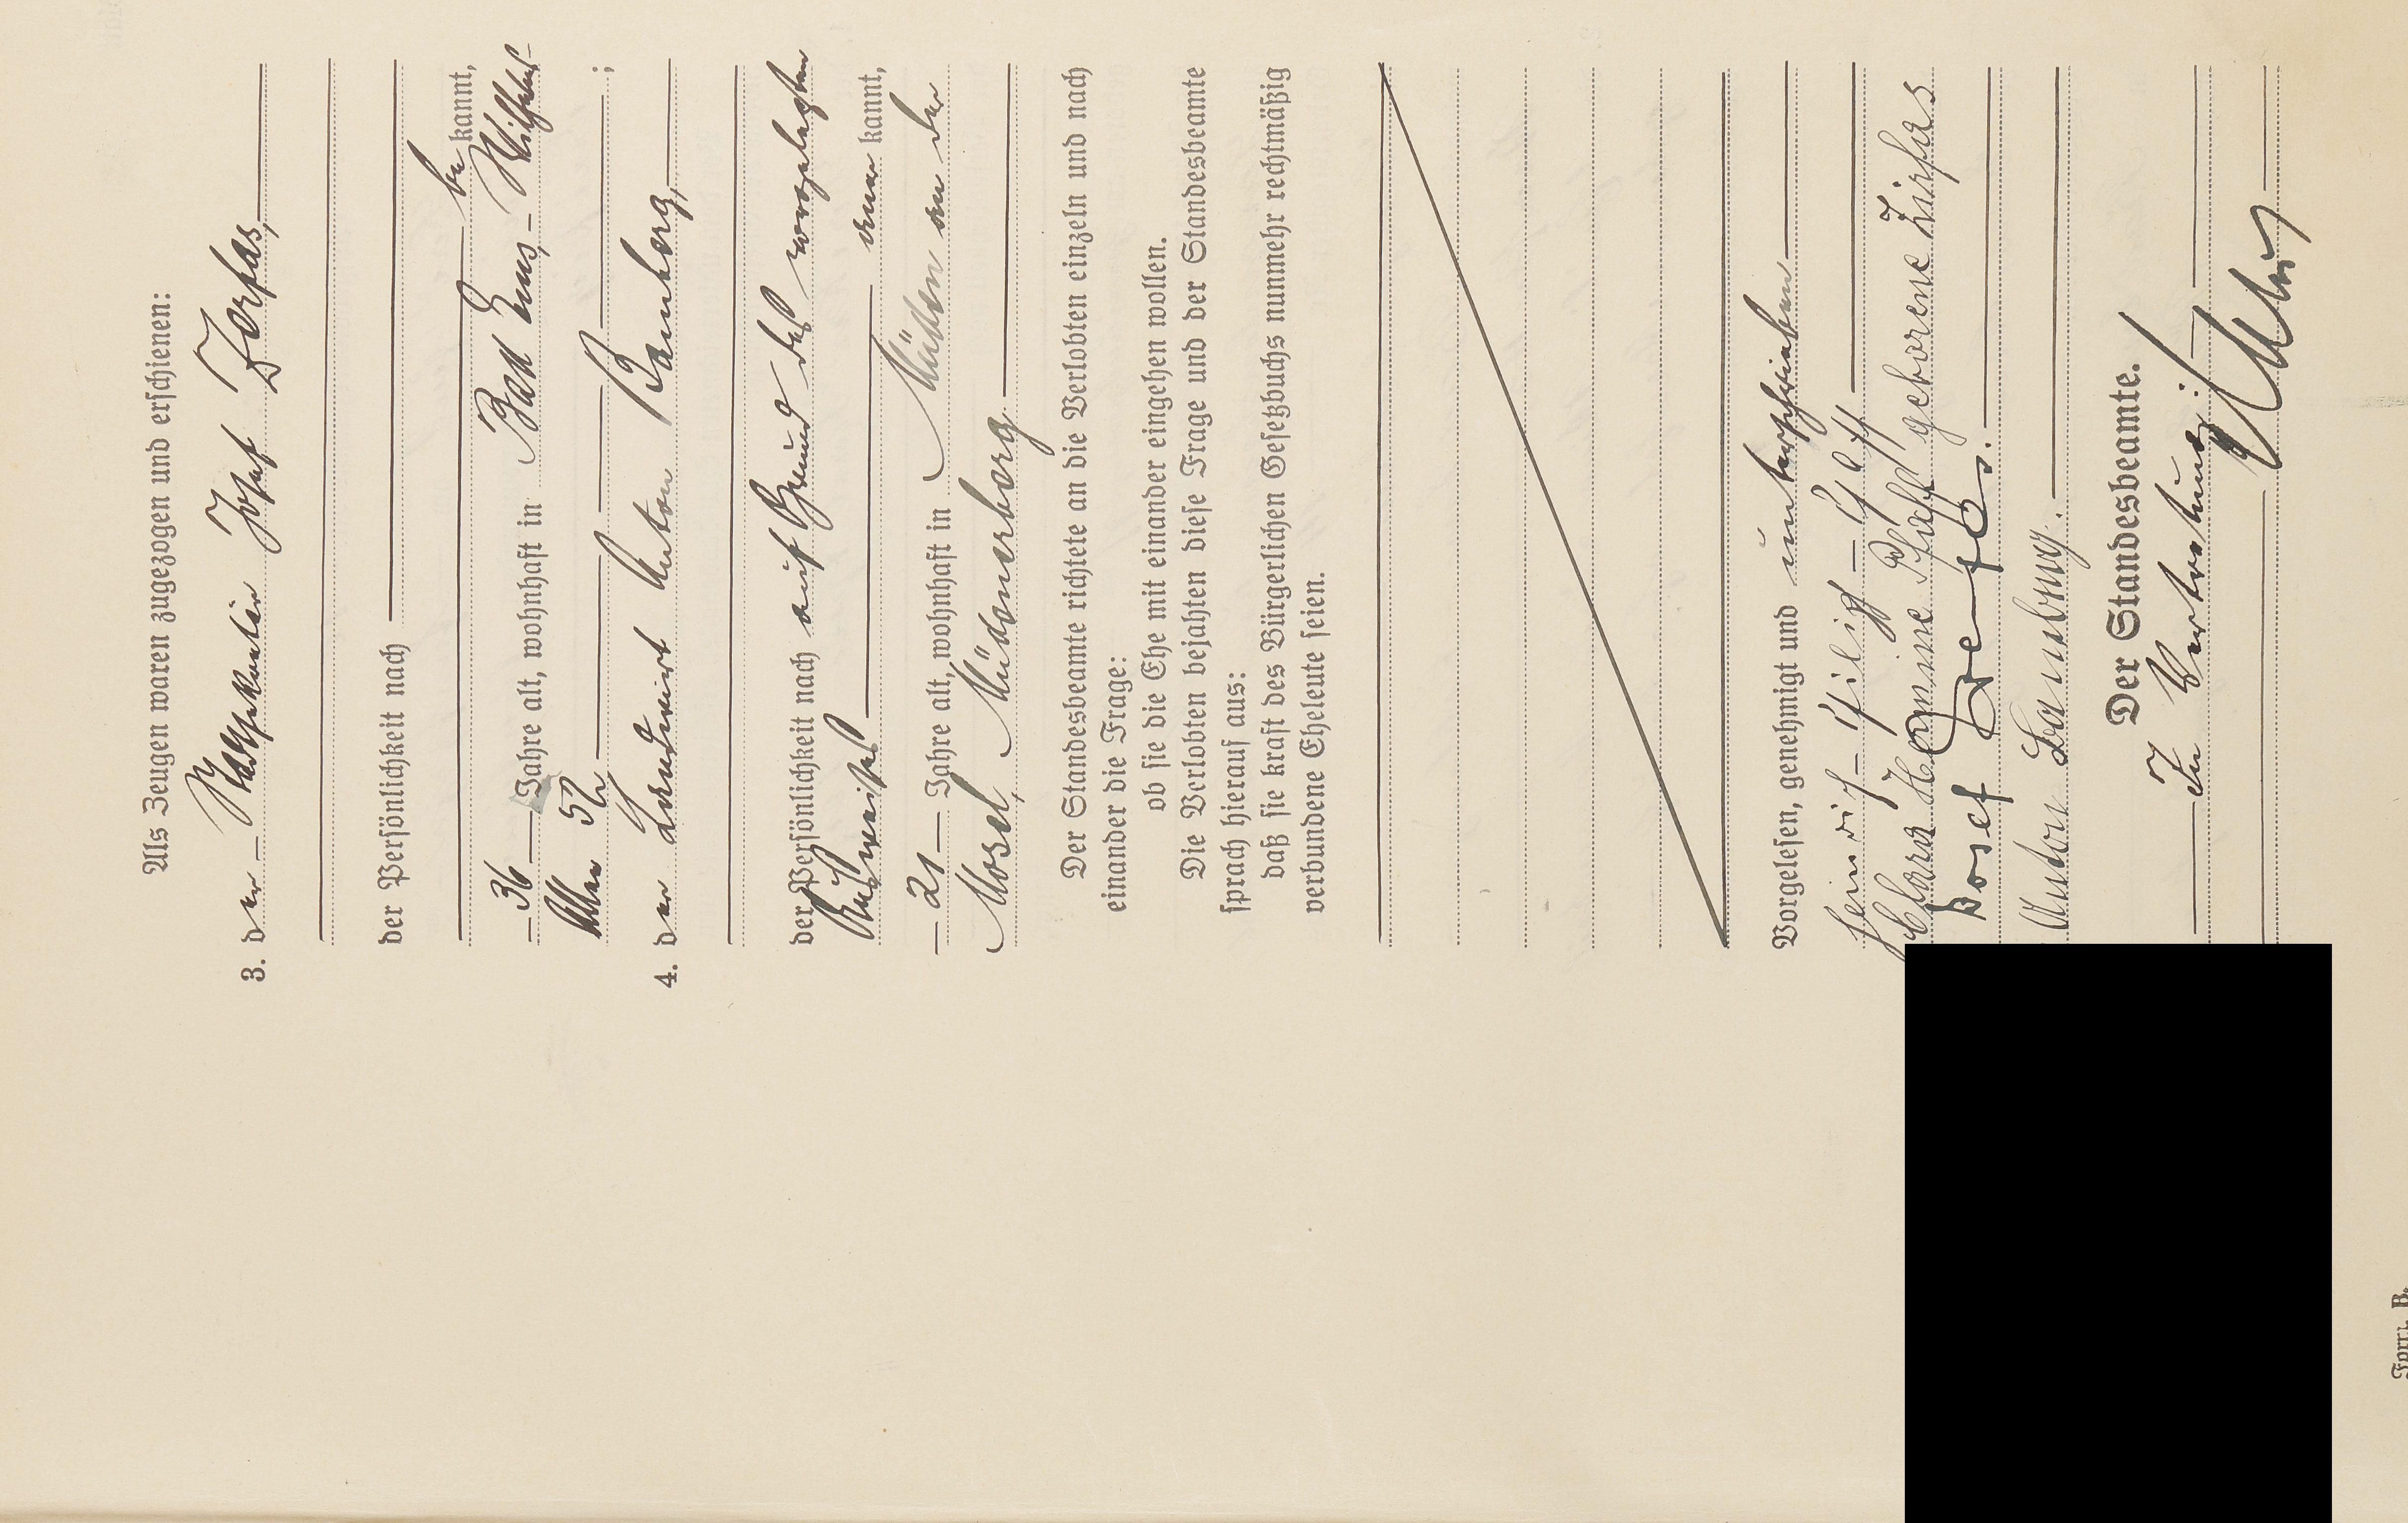 Als Zeugen waren zugezogen und erschienen:
3. der Josef Zerfas,
der Persönlichkeit nach
be kannt,
36 Jahre alt, wohnhaft in Bad Ems, Wilhelms-
Allee 52 ;
4. der Landwirt Anton Bamberg,
der Persönlichkeit nach auf Grund des vorgelegten
Ausweises aner kannt,
21 Jahre alt, wohnhaft in Müden an der
Mosel, Müdenerberg
Der Standesbeamte richtete an die Verlobten einzeln und nach
einander die Frage:
ob sie die Ehe mit einander eingehen wollen.
Die Verlobten bejahten diese Frage und der Standesbeamte
sprach hierauf aus:
daß sie kraft des Bürgerlichen Gesetzbuchs nunmehr rechtmäßig
verbundene Eheleute seien.
Vorgelesen, genehmigt und unterschrieben
Heinrich Philipp Pfaff
Clara Hermine Pfaff geborene Zirfas
Josef Zerfas.
Anton Bamberg.
Der Standesbeamte.
In Vertretung:
Form. B.